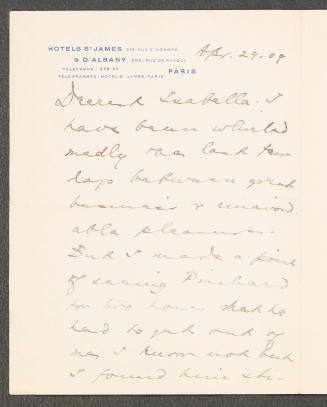 HOTELS ST JAMES 211, RUE ST HONORÉ
& D'ALBANY 202, RUE DE RIVOLI
PARIS
Apr. 29. 09
Dearest Isabella: I
have been whirled
madly the last few
days between great
business & unavoid
able pleasures.
But I made a point
of seeing Prichard
for two hours. What he
had to get out of
me I know not but
I found him sti-